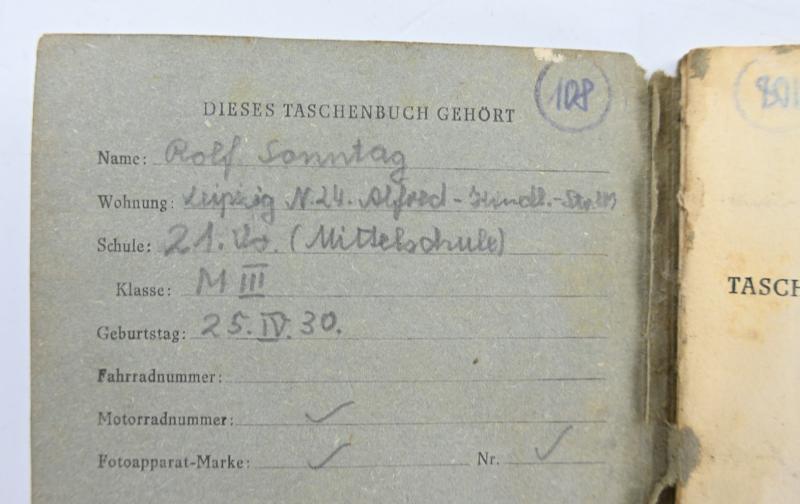 108
DIESES TASCHENBUCH GEHÖRT
Name: Rolf Sonntag
Wohnung: Leipzig N.24. Alfred-
Schule: 21. (Mittelschule)
Klasse: M III
Geburtstag: 25.IV.30.
Fahrradnummer:
Motorradnummer: ✓
Fotoapparat-Marke: ✓ Nr. ✓
TASCH